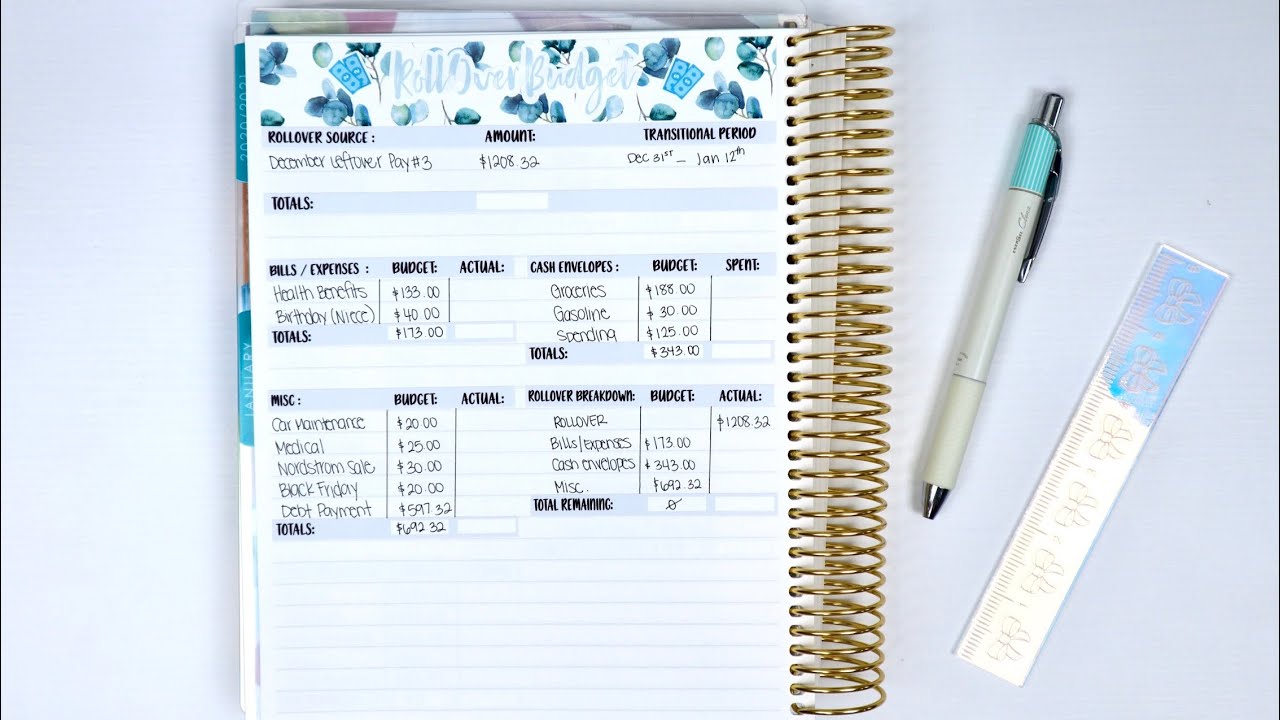 RollOver Budget
2020/2021
ROLLOVER SOURCE : AMOUNT: TRANSITIONAL PERIOD
December Leftover Pay#3 $1208.32 Dec 31ST – Jan 12th
TOTALS:
BILLS / EXPENSES : BUDGET: ACTUAL:
Health Benefits $133.00
Birthday (Niece) $40.00
TOTALS: $173.00
CASH ENVELOPES : BUDGET: SPENT:
Groceries $188.00
Gasoline $30.00
Spending $125.00
TOTALS: $343.00
JANUARY
MISC : BUDGET: ACTUAL:
Car Maintenance $20.00
Medical $25.00
Nordstrom Sale $30.00
Black Friday $20.00
Debt Payment $597.32
TOTALS: $692.32
ROLLOVER BREAKDOWN: BUDGET: ACTUAL:
ROLLOVER $1208.32
Bills/Expenses $173.00
Cash envelopes $343.00
Misc. $692.32
TOTAL REMAINING: 0